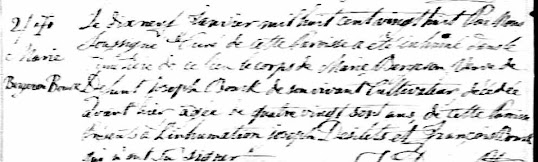 Le dix neuf Janvier mil huit cent vingt huit Par Nous
Soussigné Curé de cette Paroisse a été inhumé dans le
Marie
Cimetière de ce lieu le corps de Marie Bergeron Veuve de
Bergeron Bourk
Défunt Joseph Bourk de son vivant Cultivateur décédée
avant hier agée de quatre vingt ans, de cette Paroisse
Présents à l'inhumation Joseph Desilets et François
qui n'ont su signer